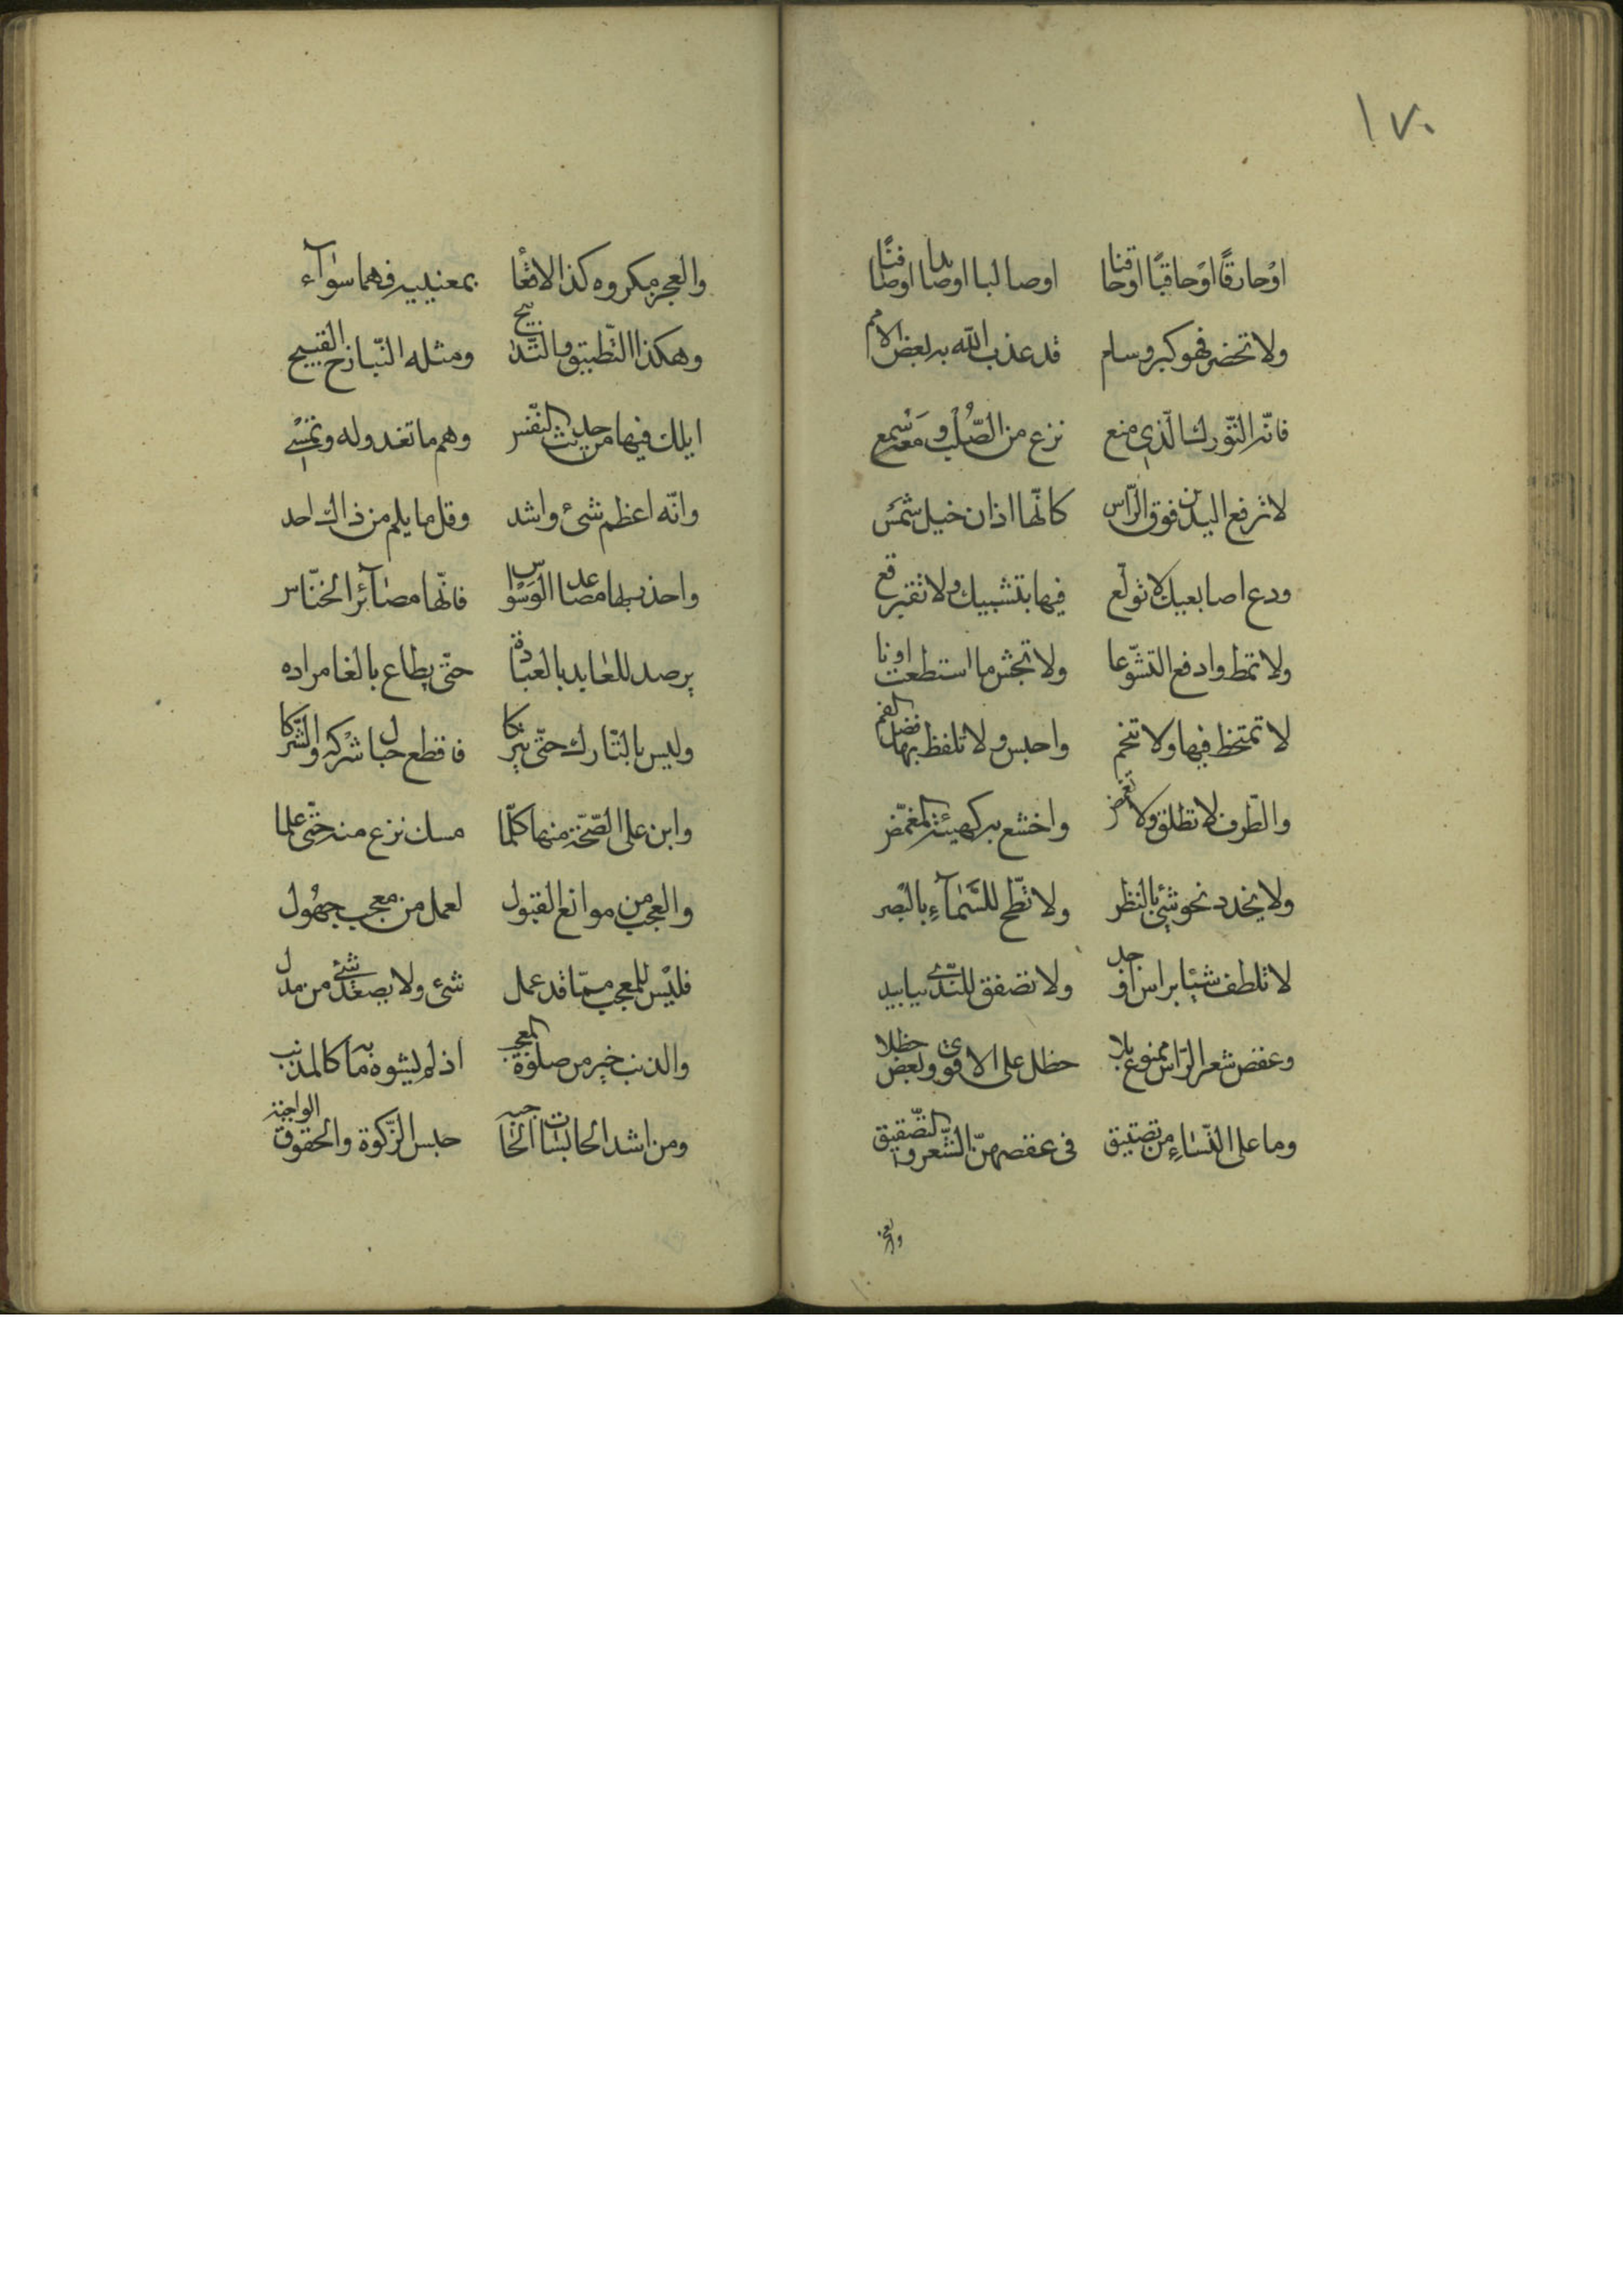 ١٧٠
اوحارقًا اوحاقبًا اوحاقنا اوصالبا اوصادا اوصافنًا
ولا تخضر فهو كبر وسام قد عذب الله به بعض الامم
فانّه التّورك الّذي منع نزع من الصُّلب و مَعَه سْمع
لا ترفع اليدين فوق الرّاس كانّها اذان خيل شمْس
ودع اصابعيك لا تولّع فيها بتشبيك ولا تفرقع
ولا تمط وادفع التثوّبا ولا تجش ما استطعت
لا تمتخط فيها ولا تنخم واحبس ولا تلفظ بها فضل الفم
والطّرف لا تطلق ولا تغمض واخشع به كهيئة المغمّض
ولا يحدد نحو شئ بالنظر ولا تطّمح للسّمآء بالبصر
لا تلطف شيئا براس او ولا تصفق للنّدى بيا بيد
وعقص شعر الرّاس ممنوع بلا حظل على الاقوى وبعض حظلا
وما على النّساء من تضييق فى عقصهنّ الشّعر والتّصفيق
والعجز
والعجز مكروه كذا الاقعآ بمعنييه فهما سوآء
وهكذا التّطبيق والتّدبيح ومثله التّبازخ القبيح
اياك فيها من حديث النّفس وهم ما تغدو له وتمسى
وانّه اعظم شئ واشد وقل ما يسلم من ذاك احد
واحذر بها مصاعد الوسواس فانّها مصآئر الخنّاس
يرصد للعابد بالعبادة حتّى يطاع بالغا مراده
وليس بالتّارك حتّى يتركا فاقطع حبال شركه والشّركا
وابن على الصّحّة منها كلّما مسك نزع منه حتّى علما
والعجب من موانع القبول لعمل من معجب جهُول
فليْس للمعجب ممّا قد عمل شئ ولا يصعد شئ من مدل
والذنب خير من صلوة المعجب اذ لم يشوه بها كالمذنب
ومن اشد الحابسات الحاجبه حبس الزّكوة والحقوق الواجبة